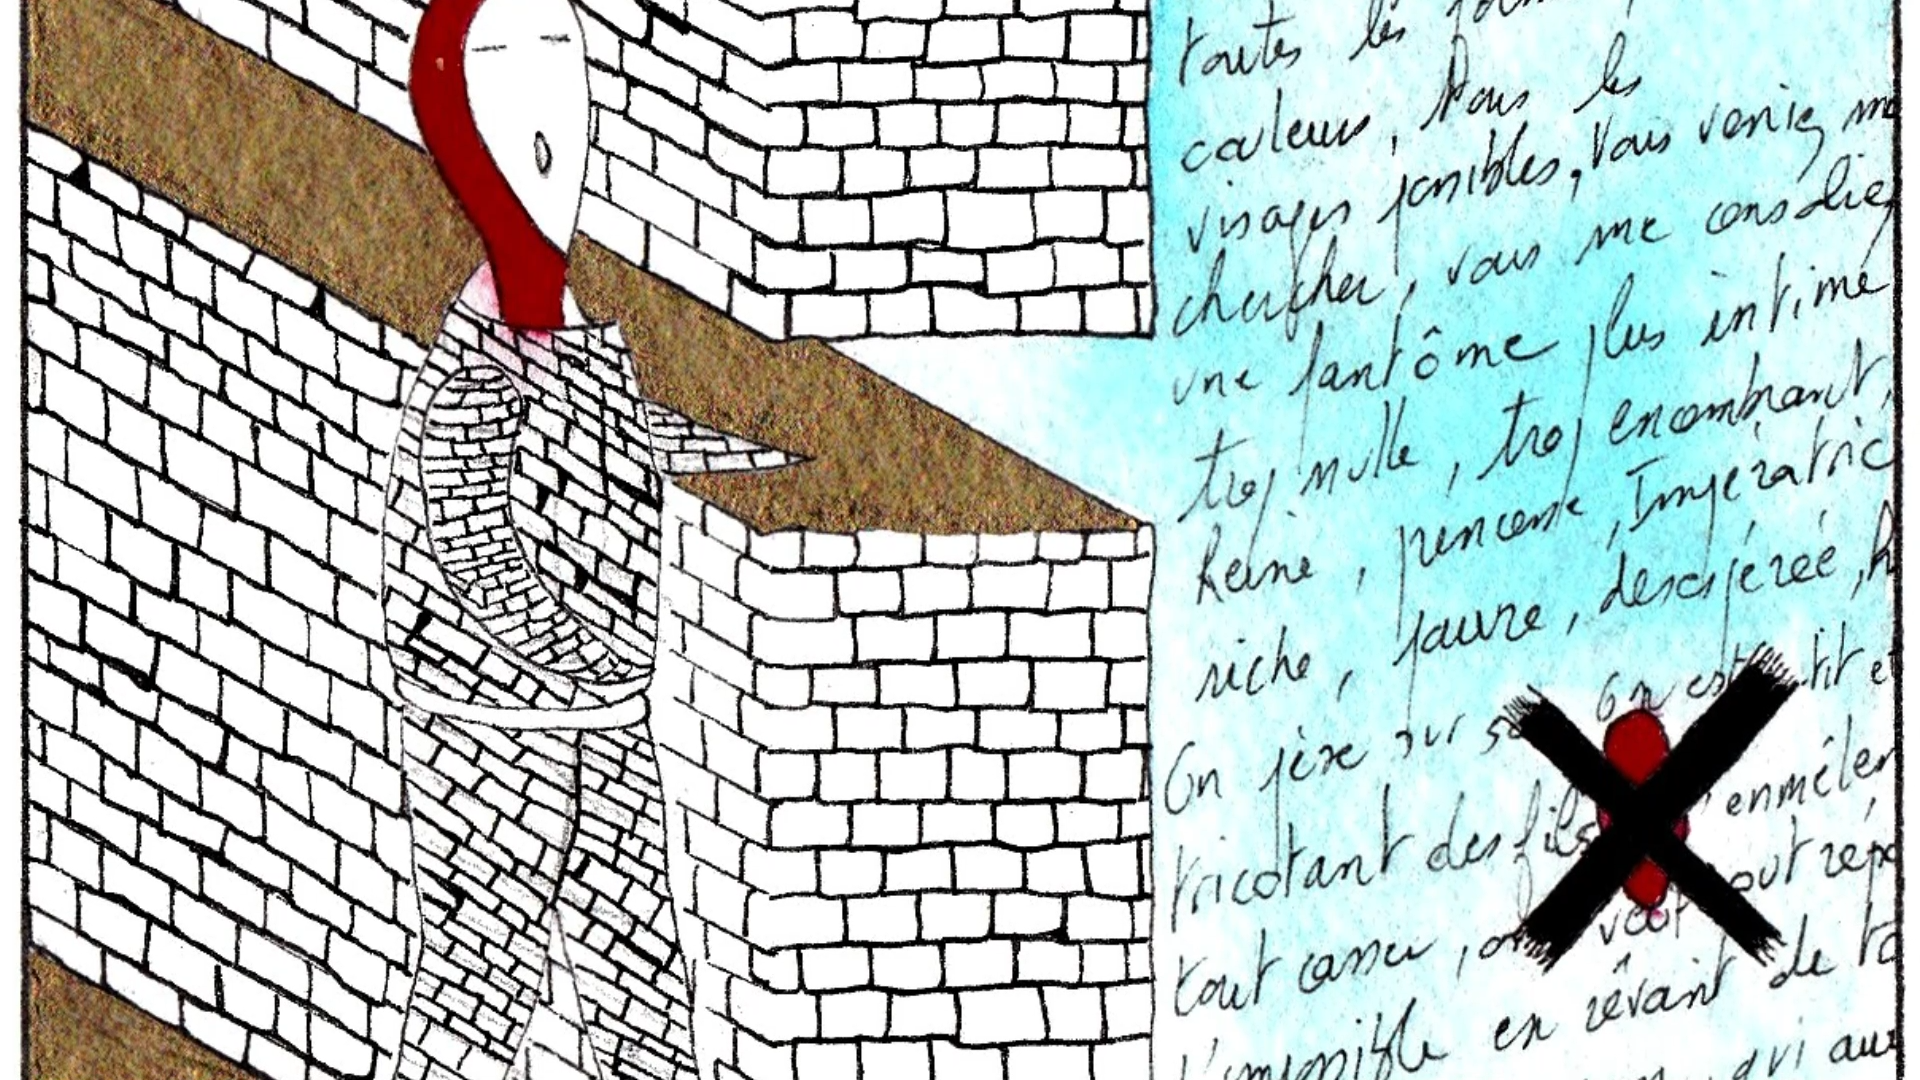 toutes les
couleurs, tous les
visages possibles, Vous veniez me
chercher, vous me consoliez
une fantôme plus intime
trop nulle, trop encombrant,
Reine, princesse, Impératric
riche, pauvre, desespérée,
On pèse sur On est tit et
tricotant des fils enmêler
tout casser, on veut tout répa
l'impossible en rêvant de to
qui aur